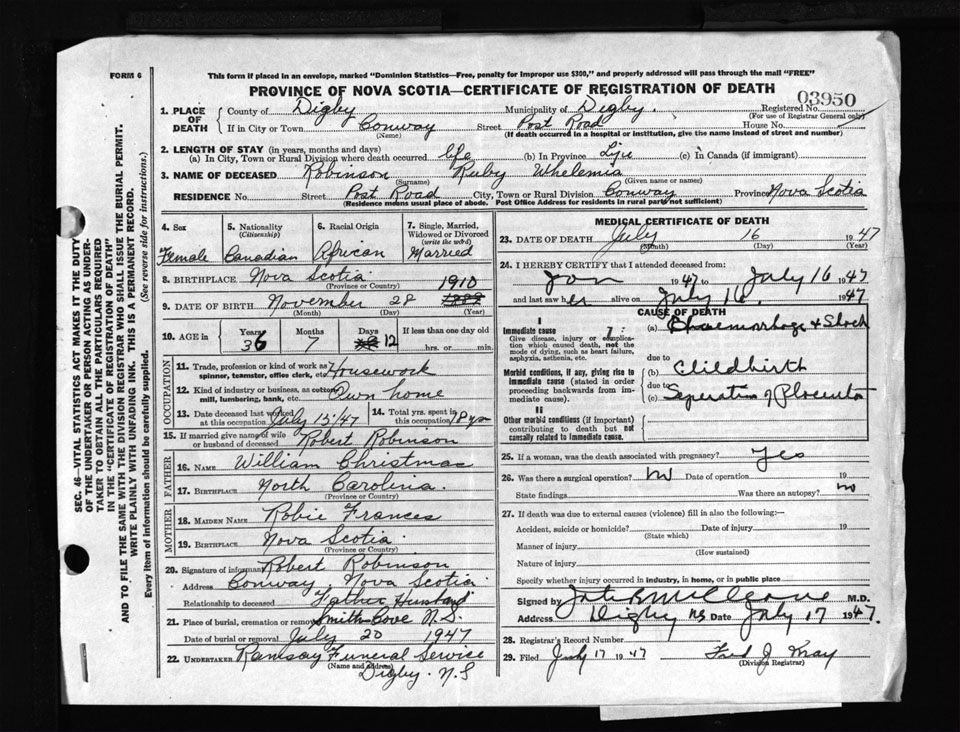 FORM 6
This form if placed in an envelope, marked "Dominion Statistics—Free, penalty for improper use $300," and properly addressed will pass through the mail "FREE"
PROVINCE OF NOVA SCOTIA—CERTIFICATE OF REGISTRATION OF DEATH
03950
1. PLACE OF DEATH
County of Digby Municipality of Digby. Registered No.
(For use of Registrar General only)
If in City or Town Conway Street Post Road House No.
(Name) (If death occurred in a hospital or institution, give the name instead of street and number)
2. LENGTH OF STAY (in years, months and days)
(a) In City, Town or Rural Division where death occurred life (b) In Province Life (c) In Canada (if immigrant)
3. NAME OF DECEASED Robinson Ruby Whelemia
(Surname) (Given name or names)
RESIDENCE No. Street Post Road City, Town or Rural Division Conway Province Nova Scotia
(Residence means usual place of abode. Post Office Address for residents in rural parts not sufficient)
4. Sex 5. Nationality (Citizenship) 6. Racial Origin 7. Single, Married, Widowed or Divorced (write the word)
Female Canadian African Married
8. BIRTHPLACE Nova Scotia 1910
(Province or Country)
9. DATE OF BIRTH November 28
(Month) (Day) (Year)
10. AGE in Years Months Days If less than one day old
36 7 12 hrs. or min.
OCCUPATION
11. Trade, profession or kind of work as spinner, teamster, office clerk, etc. Housework
12. Kind of industry or business, as cotton mill, lumbering, bank, etc. Own home
13. Date deceased last worked at this occupation July 15/47 14. Total yrs. spent in this occupation 18 yrs
15. If married give name of wife or husband of deceased Robert Robinson
FATHER
16. NAME William Christmas
17. BIRTHPLACE North Carolina.
(Province or Country)
MOTHER
18. MAIDEN NAME Robie Frances
19. BIRTHPLACE Nova Scotia
(Province or Country)
20. Signature of informant Robert Robinson
Address Conway Nova Scotia
Relationship to deceased Father Husband
21. Place of burial, cremation or removal Smith Cove N.S.
Date of burial or removal July 20 1947
22. UNDERTAKER Ramsay Funeral Service
(Name and address) Digby. N.S
MEDICAL CERTIFICATE OF DEATH
23. DATE OF DEATH July 16 1947
(Month) (Day) (Year)
24. I HEREBY CERTIFY that I attended deceased from:
Jan 1947 to July 16 1947
and last saw her alive on July 16. 1947
CAUSE OF DEATH
I
Immediate cause
Give disease, injury or complication which caused death, not the mode of dying, such as heart failure, asphyxia, asthenia, etc.
(a) Haemorrhage & Shock
due to
Morbid conditions, if any, giving rise to immediate cause (stated in order proceeding backwards from immediate cause).
(b) Childbirth
due to
(c) Seperation of Placenta
II
Other morbid conditions (if important) contributing to death but not causally related to immediate cause.
25. If a woman, was the death associated with pregnancy? Yes
26. Was there a surgical operation? No Date of operation 19
State findings Was there an autopsy? no
27. If death was due to external causes (violence) fill in also the following:—
Accident, suicide or homicide? Date of injury 19
(State which)
Manner of injury
(How sustained)
Nature of injury
Specify whether injury occurred in industry, in home, or in public place
Signed by M.D.
Address Digby NS Date July 17 1947.
28. Registrar's Record Number
29. Filed July 17 1947 Fred J. May
(Division Registrar)
SEC. 46—VITAL STATISTICS ACT MAKES IT THE DUTY
OF THE UNDERTAKER OR PERSON ACTING AS UNDER-
TAKER TO OBTAIN ALL THE PARTICULARS REQUIRED
IN THE "CERTIFICATE OF REGISTRATION OF DEATH"
AND TO FILE THE SAME WITH THE DIVISION REGISTRAR WHO SHALL ISSUE THE BURIAL PERMIT.
WRITE PLAINLY WITH UNFADING INK. THIS IS A PERMANENT RECORD.
Every item of information should be carefully supplied. (See reverse side for instructions.)